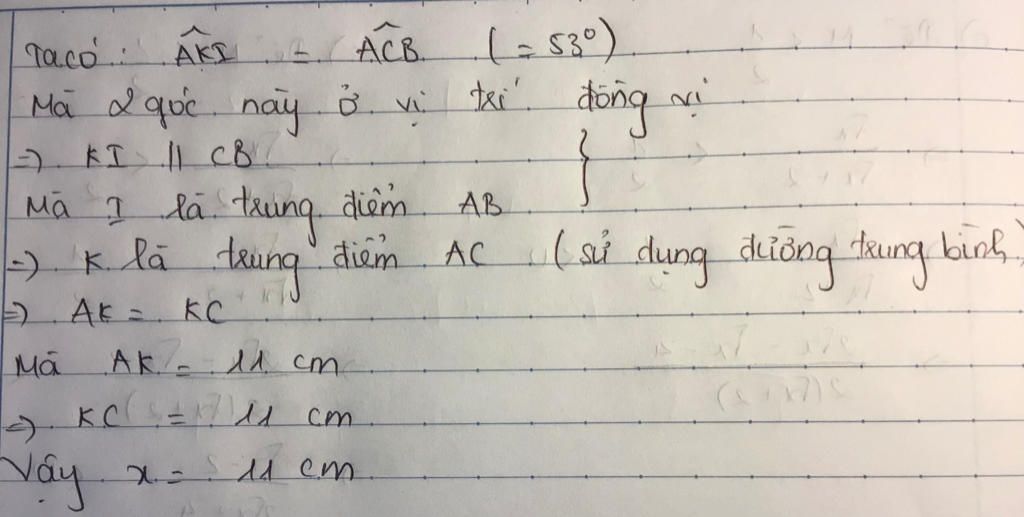 Ta có: AKI = ACB (= 53°)
Mà 2 góc này ở vị trí đồng vị
=> KI // CB
Mà I là trung điểm AB
=> K là trung điểm AC (sử dụng đường trung bình)
=> AK = KC
Mà AK = 11 cm
=> KC = 11 cm
Vậy x = 11 cm